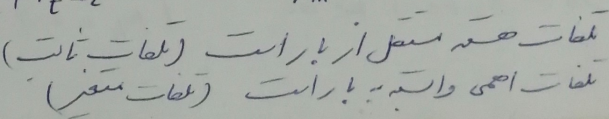 تلفات هسته مستقل از بار است (تلفات ثابت)
تلفات اهمی وابسته به بار است (تلفات متغیر)